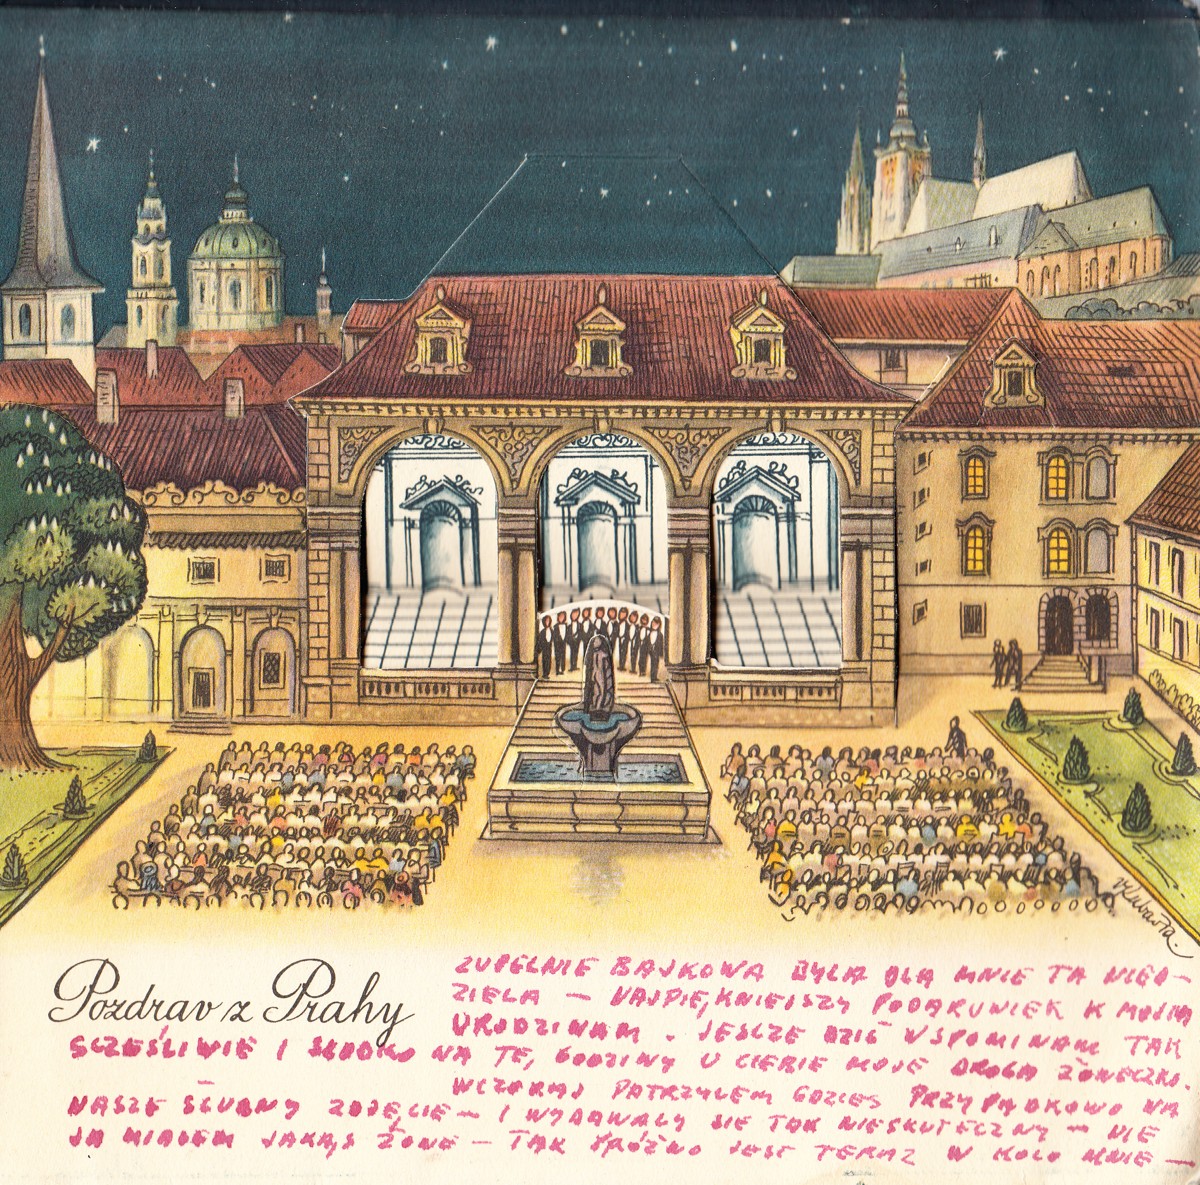 Pozdrav z Prahy
V. Kubašta.
ZUPEŁNIE BAJKOWA BYŁA DLA MNIE TA NIED-
ZIELA — NAJPIĘKNIEJSZY PODARUNIEK K MOJIM
URODZINAM. JESZCZE DZIŚ WSPOMINAM TAK
SCZEŚLIWIE I SŁODKO NA TE, GODZINY U CIEBIE MOJE DROGA ŻONECZKO.
WCZORAJ PATRZYŁEM GDZIES PRZYPADKOWO NA
NASZE ŚLUBNY ZDJĘCIE — I WYDAWAŁY SIE TAK NIESKUTECZNY — NIE
JA MIAŁEM JAKĄŚ ŻONE — TAK PRÓŻNO JEST TERAZ W KOLO MNIE —